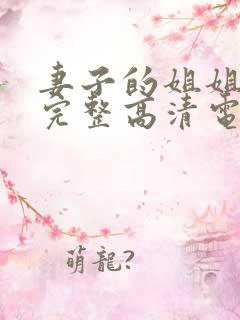 妻子的姐姐
完整高清電
萌龍?